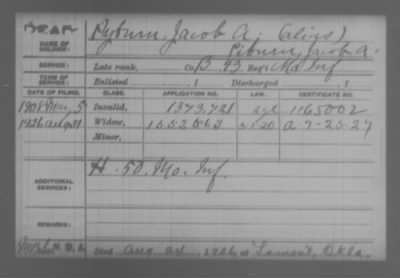 DEAD
NAME OF SOLDIER: Pyburn, Jacob A. (alias)
Piburn, Jacob A.
SERVICE: Late rank, Co. B. 43 Reg't Mo Inf
TERM OF SERVICE: Enlisted , 1 Discharged , 1
DATE OF FILING. CLASS. APPLICATION NO. LAW. CERTIFICATE NO.
1908 Mar, 5 Invalid, 1373,721 age 1165002
1926 31 Widow, Minor,
ADDITIONAL SERVICES: H. 50. Mo. Inf.
REMARKS:
Died Aug , 1926 at Lamont, Okla.